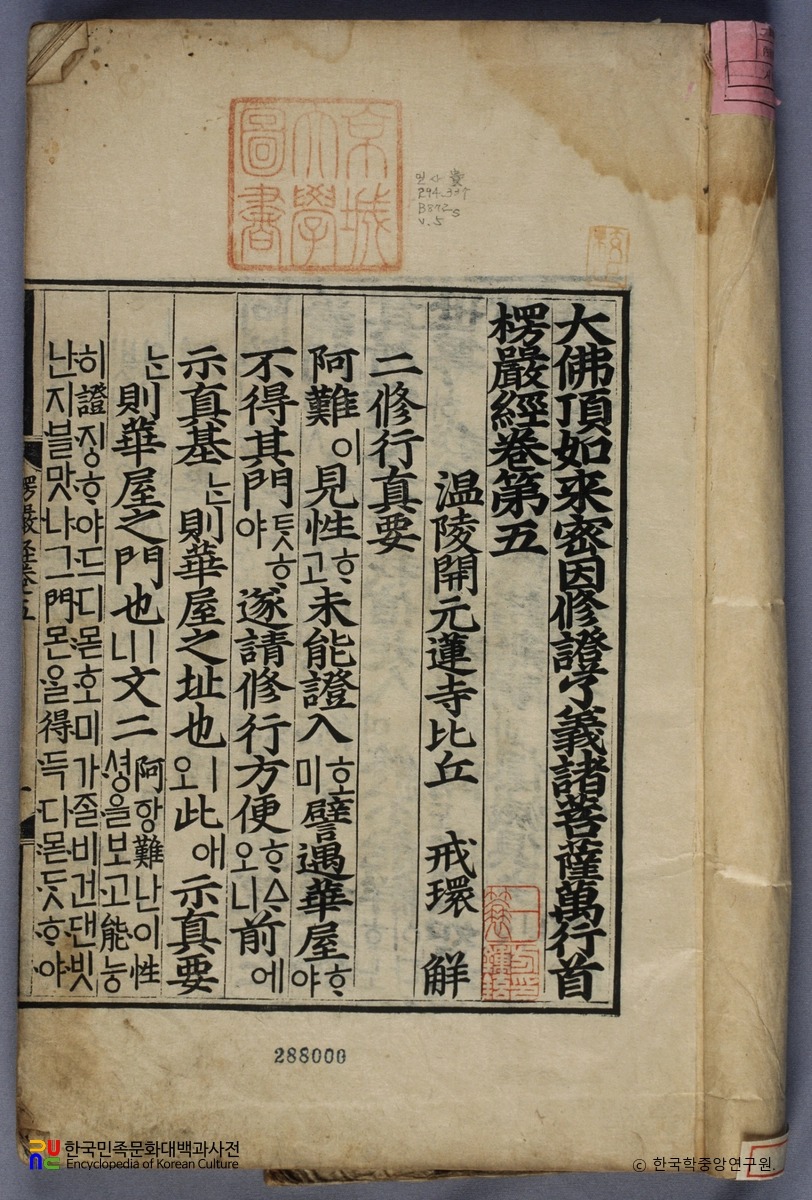 大佛頂如來密因修證了義諸菩薩萬行首
楞嚴經卷第五
温陵開元蓮寺比丘 戒環 解
二修行真要
阿難이見性ᄒᆞ고未能證入호미譬遇華屋ᄒᆞ야
不得其門ᄃᆞᆺᄒᆞ야遂請修行方便ᄒᆞᅀᆞ오니前에
示真基ᄂᆞᆫ則華屋之址也ㅣ오此애示真要
ᄂᆞᆫ則華屋之門也ㅣ니文二
阿항難난이性
셩을보고能능
히證징ᄒᆞ야드디몯호미가ᄌᆞᆯ비건댄빗
난지블맛나그門몬ᄋᆞᆯ得득디몯ᄃᆞᆺᄒᆞ야
楞嚴經卷五
京城
大學
圖書
294.337
B872s
v.5
288000
한국민족문화대백과사전
Encyclopedia of Korean Culture
ⓒ 한국학중앙연구원.